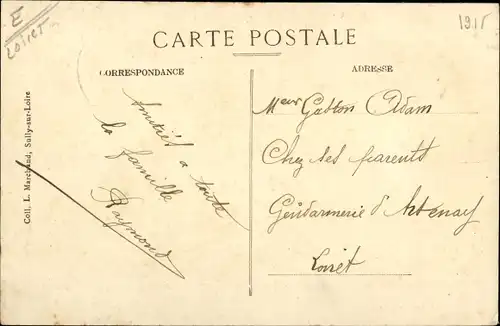 E
Loiret
1915
CARTE POSTALE
CORRESPONDANCE
ADRESSE
Amitiés a toute
la famille
Raymond
Gaston Adam
Chez ses parents
Gendarmerie d'Artenay
Loiret
Coll. L. Marchand, Sully-sur-Loire